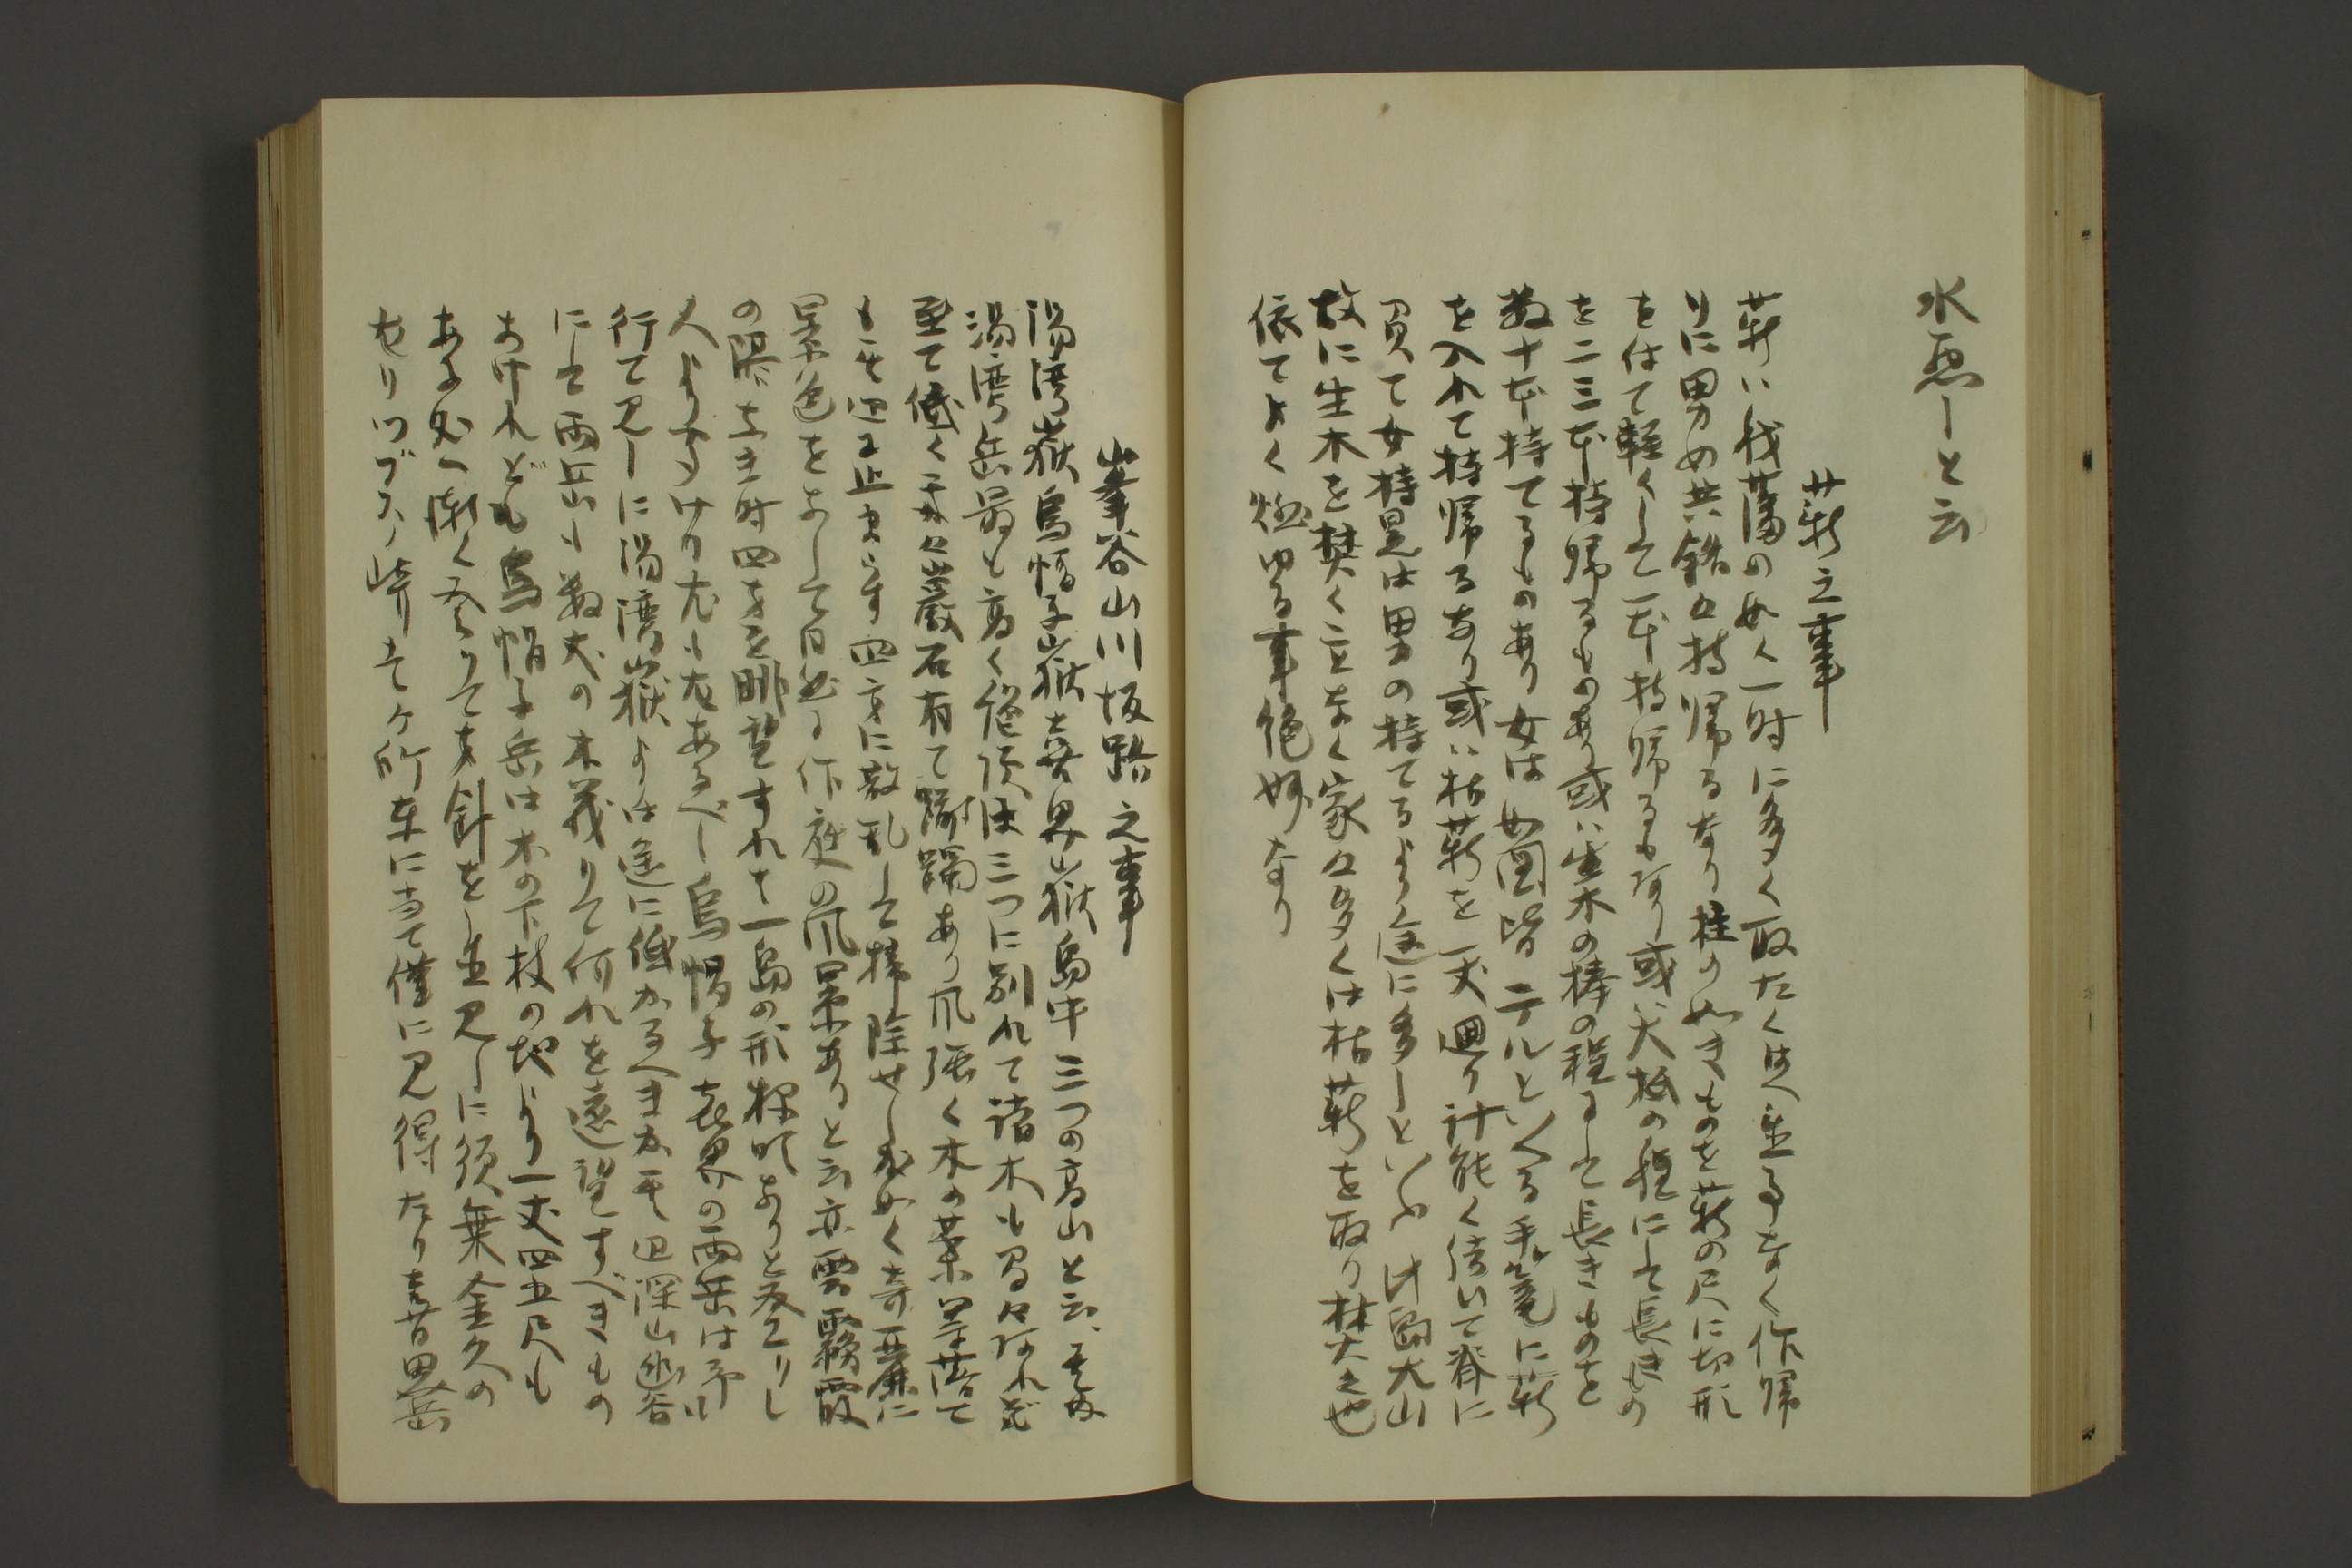 水悪しと云
薪之事
薪ハ我藩の如く一時に多く取たくはへ置事なく作帰
りに男女共銘々持帰るなり柱の如きものを薪の尺に切形
を付て軽くして一本持帰るもあり或ハ大杭の程にして長きもの
を二三本持帰るもあり或ハ生木の棒の程にして長きものを
数十本持てるものあり女は如図皆テルといへる手籠に薪
を入れて持帰るあり或ハ枯薪を一丈廻り計能く結いて脊に
負て女持是は男の持てるより遥に多しといふ此島大山
故に生木を焚く云なく家々多くは枯薪を取り焚大之也
依てよく燃ゆる事絶妙なり
峯谷山川坂路之事
湯湾嶽烏帽子嶽喜界嶽島中三つの高山と云、其内
湯湾岳最も高く絶頂は三つに別れて諸木も間々あれど
至て低く天然巌石有て躑躅あり風強く木の葉草落て
も其辺に止まらす四方に散乱して掃除せしか如く奇麗に
景色をよして自然に作庭の風景ありと云亦雲霧霞
の隠なき時四方を眺望すれは一島の形相眺ありと登りし
人より聞けり尤も左あるべし烏帽子喜界の両岳は予も
行て見しに湯湾嶽よりは遥に低かるへきか其辺深山幽谷
にして両岳も数丈の木茂りて何れを遠望すべきもの
なけれども烏帽子岳は木の下枝の地より一丈四五尺も
ある処へ漸く登りて方針を置見しに須無金久の
セリツブスノ崎り其ケ所東に当て僅に見得たり喜昔界岳